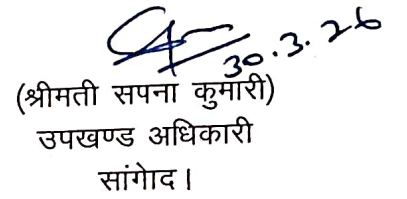 30.3.26
(श्रीमती सपना कुमारी)
उपखण्ड अधिकारी
सांगेाद।